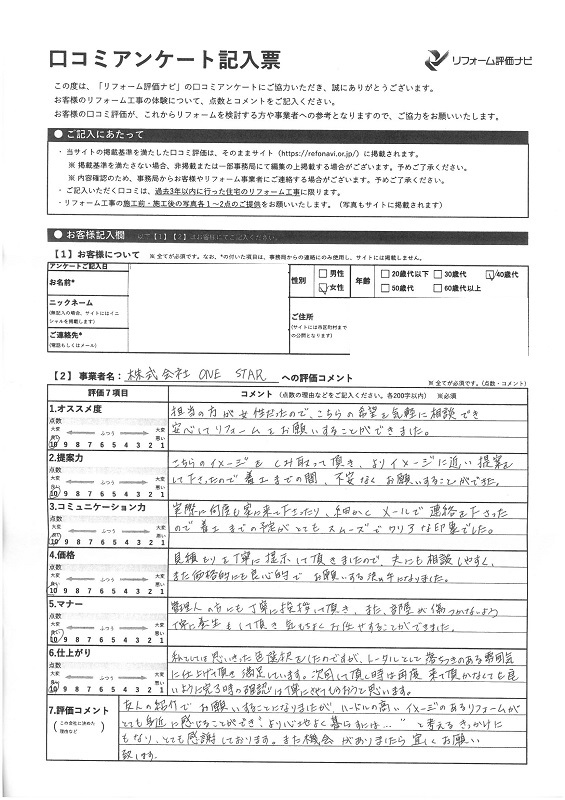 口コミアンケート記入票
リフォーム評価ナビ
この度は、「リフォーム評価ナビ」の口コミアンケートにご協力いただき、誠にありがとうございます。
お客様のリフォーム工事の体験について、点数とコメントをご記入ください。
お客様の口コミ評価が、これからリフォームを検討する方や事業者への参考となりますので、ご協力をお願いいたします。
● ご記入にあたって
・当サイトの掲載基準を満たした口コミ評価は、そのままサイト（https://refonavi.or.jp/）に掲載されます。
※ 掲載基準を満たさない場合、非掲載または一部事務局にて編集の上掲載する場合がございます。予めご了承ください。
※ 内容確認のため、事務局からお客様やリフォーム事業者にご連絡する場合がございます。予めご了承ください。
・ご記入いただく口コミは、過去3年以内に行った住宅のリフォーム工事に限ります。
・リフォーム工事の施工前・施工後の写真各1～2点のご提供をお願いいたします。（写真もサイトに掲載されます）
● お客様記入欄 以下【1】【2】はお客様にてご記入ください。
【1】お客様について ※ 全てが必須です。なお、*の付いた項目は、事務局からの連絡にのみ使用し、サイトには掲載しません。
アンケートご記入日
お名前*
ニックネーム
(無記入の場合、サイトにはイニシャルを掲載します)
ご連絡先*
(電話もしくはメール)
性別 男性 女性
年齢 20歳代以下 30歳代 40歳代
50歳代 60歳代以上
ご住所
(サイトには市区町村までの公開となります)
【2】事業者名： 株式会社 ONE STAR への評価コメント
※ 全てが必須です。(点数・コメント)
評価7項目 コメント （点数の理由などをご記入ください。各200字以内） ※必須
1.オススメ度
点数
大変良い ふつう 大変悪い
10 9 8 7 6 5 4 3 2 1
担当の方が女性だったので、こちらの希望を気軽に相談でき
安心してリフォームをお願いすることができました。
2.提案力
点数
大変良い ふつう 大変悪い
10 9 8 7 6 5 4 3 2 1
こちらのイメージをくみ取って頂き、よりイメージに近い提案を
して下さったので着工までの間、不安なくお願いすることができた。
3.コミュニケーション力
点数
大変良い ふつう 大変悪い
10 9 8 7 6 5 4 3 2 1
実際に何度も家に来て下さったり、細かくメールで連絡を下さった
ので着工までの予定がとてもスムーズでクリアな印象でした。
4.価格
点数
大変良い ふつう 大変悪い
10 9 8 7 6 5 4 3 2 1
見積もりを丁寧に提示して頂きましたので、夫にも相談しやすく、
また価格的にも良心的でお願いする決め手になりました。
5.マナー
点数
大変良い ふつう 大変悪い
10 9 8 7 6 5 4 3 2 1
管理人の方にも丁寧に挨拶して頂き、また、部屋が傷つかないよう
丁寧に養生もして頂き気もちよくお任せすることができました。
6.仕上がり
点数
大変良い ふつう 大変悪い
10 9 8 7 6 5 4 3 2 1
私としては思いきった色選択をしたのですが、トータルとして落ちつきのある雰囲気
に仕上げて頂き満足しています。次回して頂く時は再度来て頂かなくても良
いように完了時の確認は
と思います。
7.評価コメント
（この会社に決めた理由など）
友人の紹介でお願いすることになりましたが、ハードルの高いイメージのあるリフォームが
とても身近に感じることができ、“より心地よく暮らすには…”と考えるきっかけに
もなり、とても感謝しております。また機会がありましたら宜しくお願い
致します。